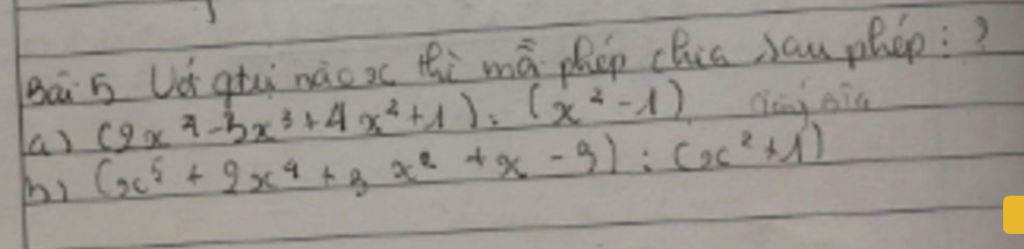 Bài 5 Với gtrị nào x thì mỗi phép chia sau phép : ?
a) (2x⁴-3x³+4x²+1) : (x²-1)
b) (x⁵ + 2x⁴ + 3x² + x - 3) : (x²+1)